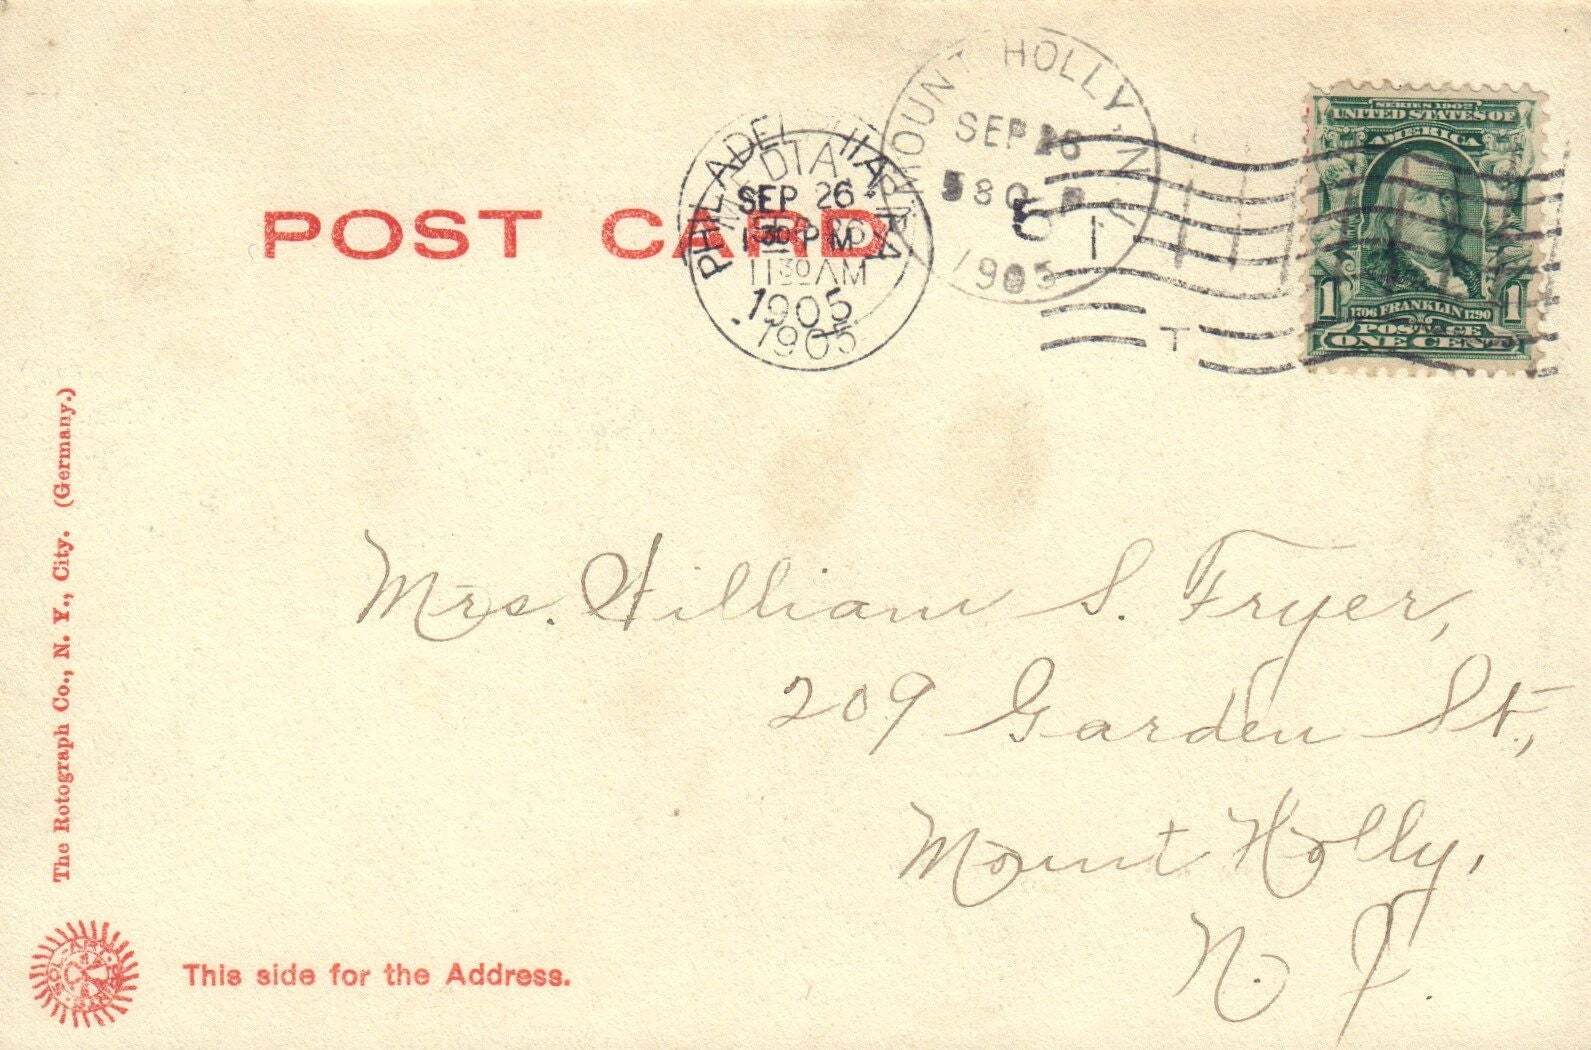 POST CARD
PHILADELPHIA, PA.
SEP 26
1 30 PM
1905
MEDIA
11 30 AM
1905
MOUNT HOLLY N.J.
SEP 26
1905
T
SERIES 1902
UNITED STATES OF
AMERICA
1 1
1706 FRANKLIN 1790
POSTAGE
ONE CENT
The Rotograph Co., N. Y., City. (Germany.)
Mrs. William S. Fryer,
209 Garden St.,
Mount Holly,
N. J.
This side for the Address.